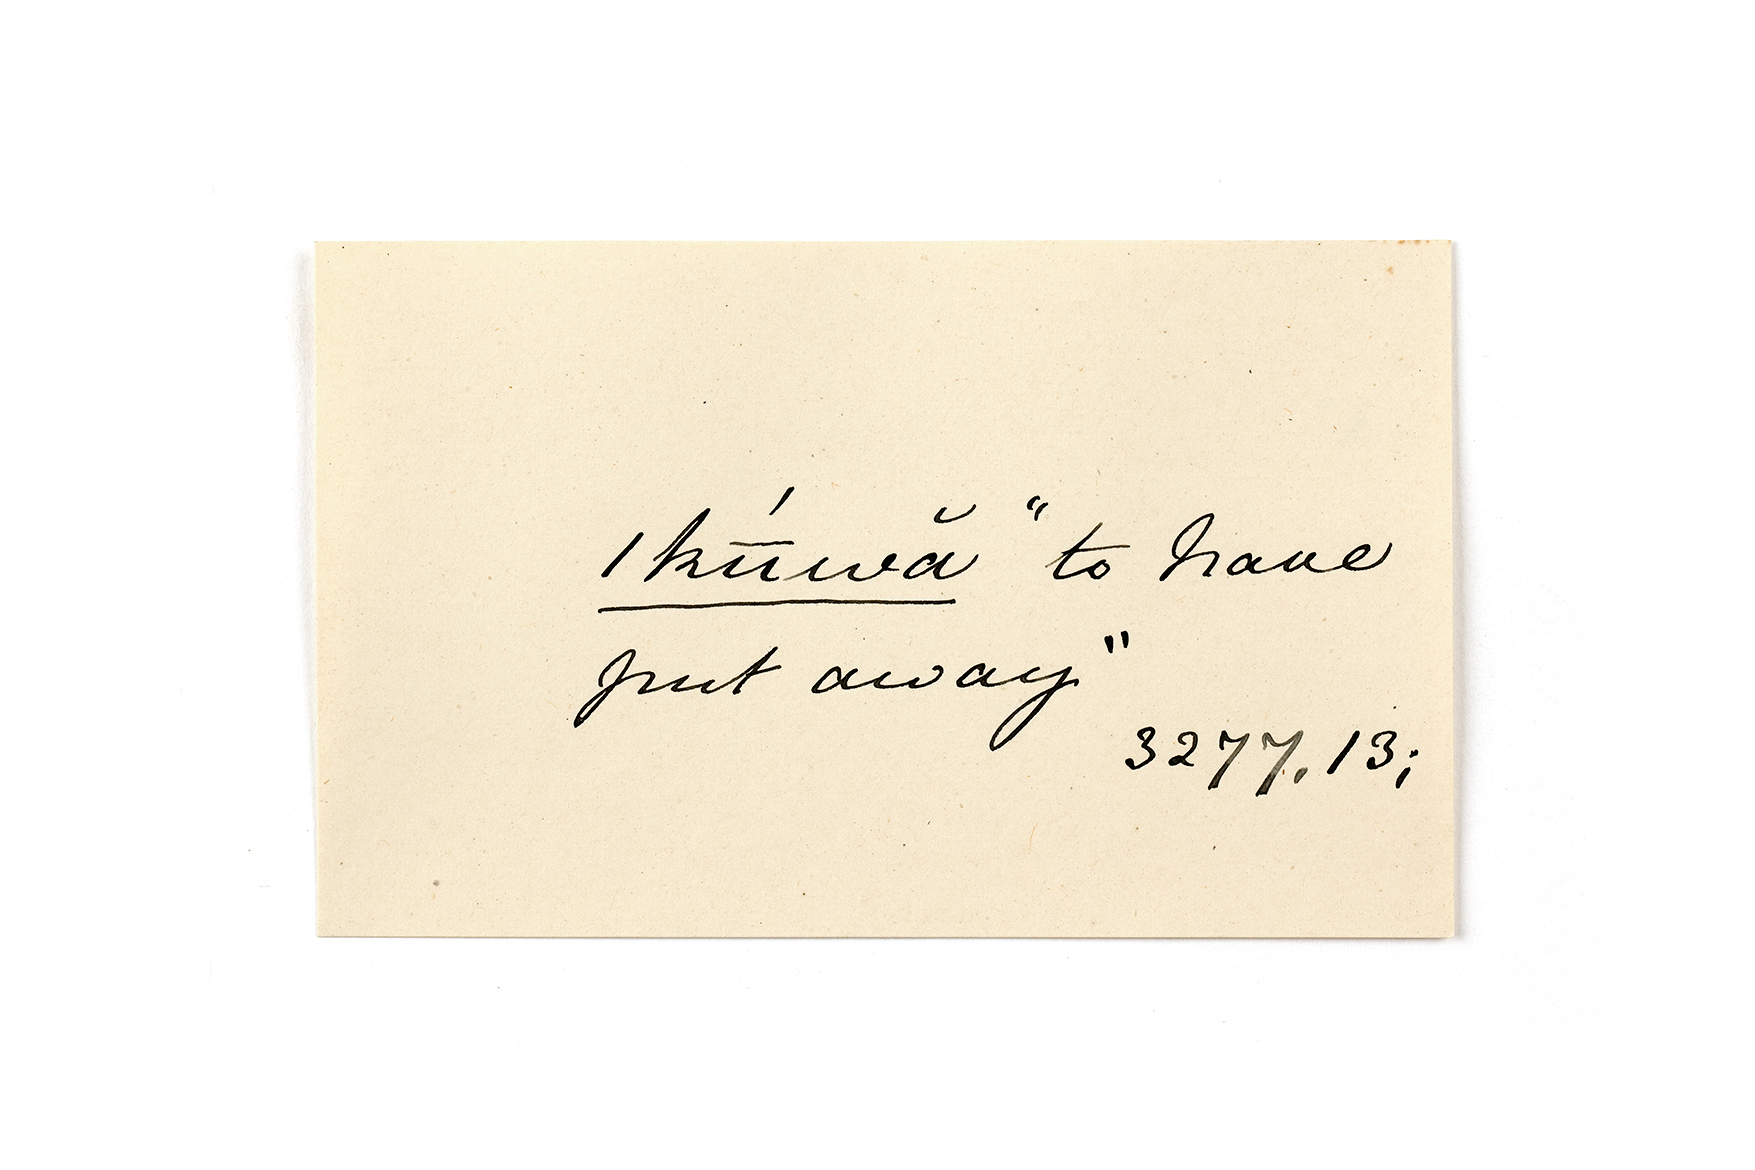 ǀkū́wă “to have
put away"
3277.13;